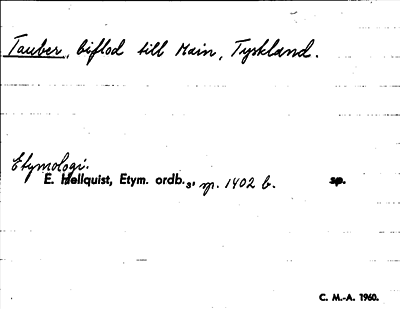 Tauber, biflod till Main, Tyskland.
Etymologi.
E. Hellquist, Etym. ordb.₃, sp. 1402 b. sp.
C. M.-A. 1960.